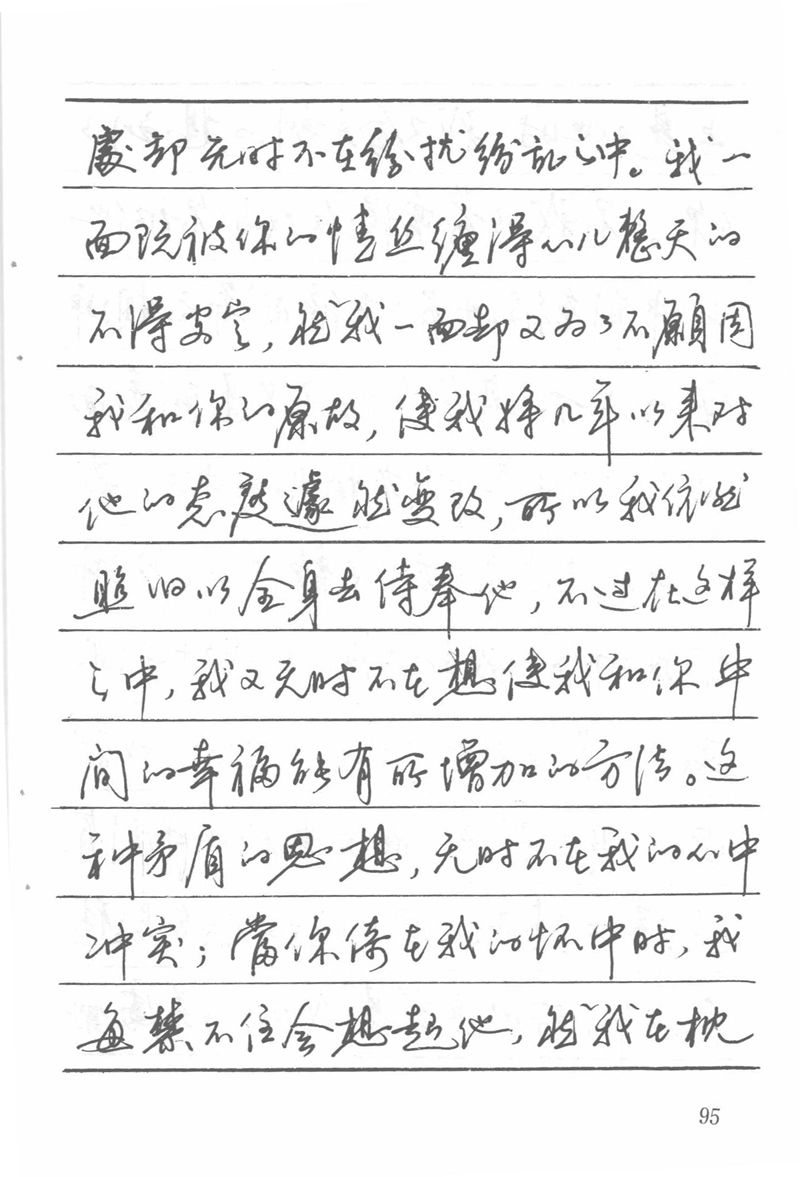 處却无时不在纷扰纷乱之中。我一
面既被你的情丝缠得心儿整天的
不得安定，然我一面却又为了不願因
我和你的原故，使我将几年以来对
他的态度遽然变改，所以我依然
照旧以全身去侍奉他，不过在这样
之中，我又无时不在想使我和你中
间的幸福能有所增加的方法。这
种矛盾的思想，无时不在我的心中
冲突；當你倚在我的怀中时，我
每禁不住会想起他，然我在枕
95